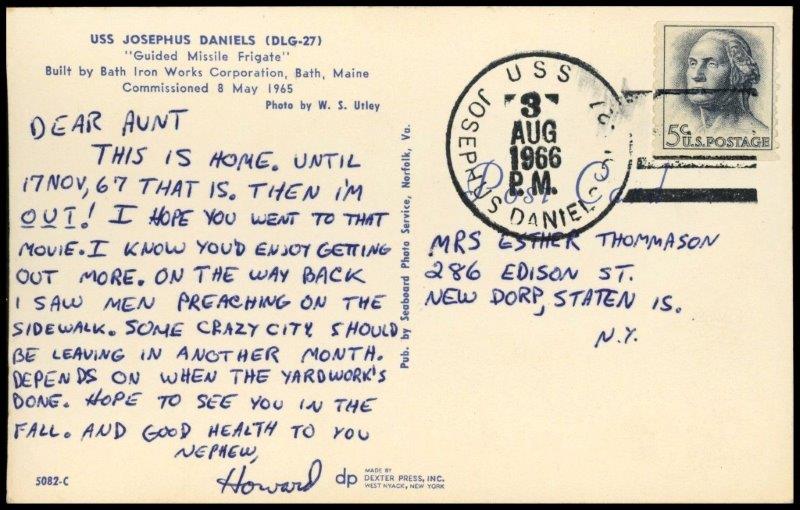 USS JOSEPHUS DANIELS (DLG-27)
"Guided Missile Frigate"
Built by Bath Iron Works Corporation, Bath, Maine
Commissioned 8 May 1965
Photo by W. S. Utley
DEAR AUNT
THIS IS HOME. UNTIL
17 NOV, 67 THAT IS. THEN I'M
OUT! I HOPE YOU WENT TO THAT
MOVIE. I KNOW YOU'D ENJOY GETTING
OUT MORE. ON THE WAY BACK
I SAW MEN PREACHING ON THE
SIDEWALK. SOME CRAZY CITY. SHOULD
BE LEAVING IN ANOTHER MONTH.
DEPENDS ON WHEN THE YARDWORK'S
DONE. HOPE TO SEE YOU IN THE
FALL. AND GOOD HEALTH TO YOU
NEPHEW,
Howard
5082-C
dp
MADE BY
DEXTER PRESS, INC.
WEST NYACK, NEW YORK
Pub. by Seaboard Photo Service, Norfolk, Va.
USS JOSEPHUS DANIELS
3
AUG
1966
P.M.
5¢
U.S. POSTAGE
Post Card
MRS ESTHER THOMMASON
286 EDISON ST.
NEW DORP, STATEN IS.
N.Y.